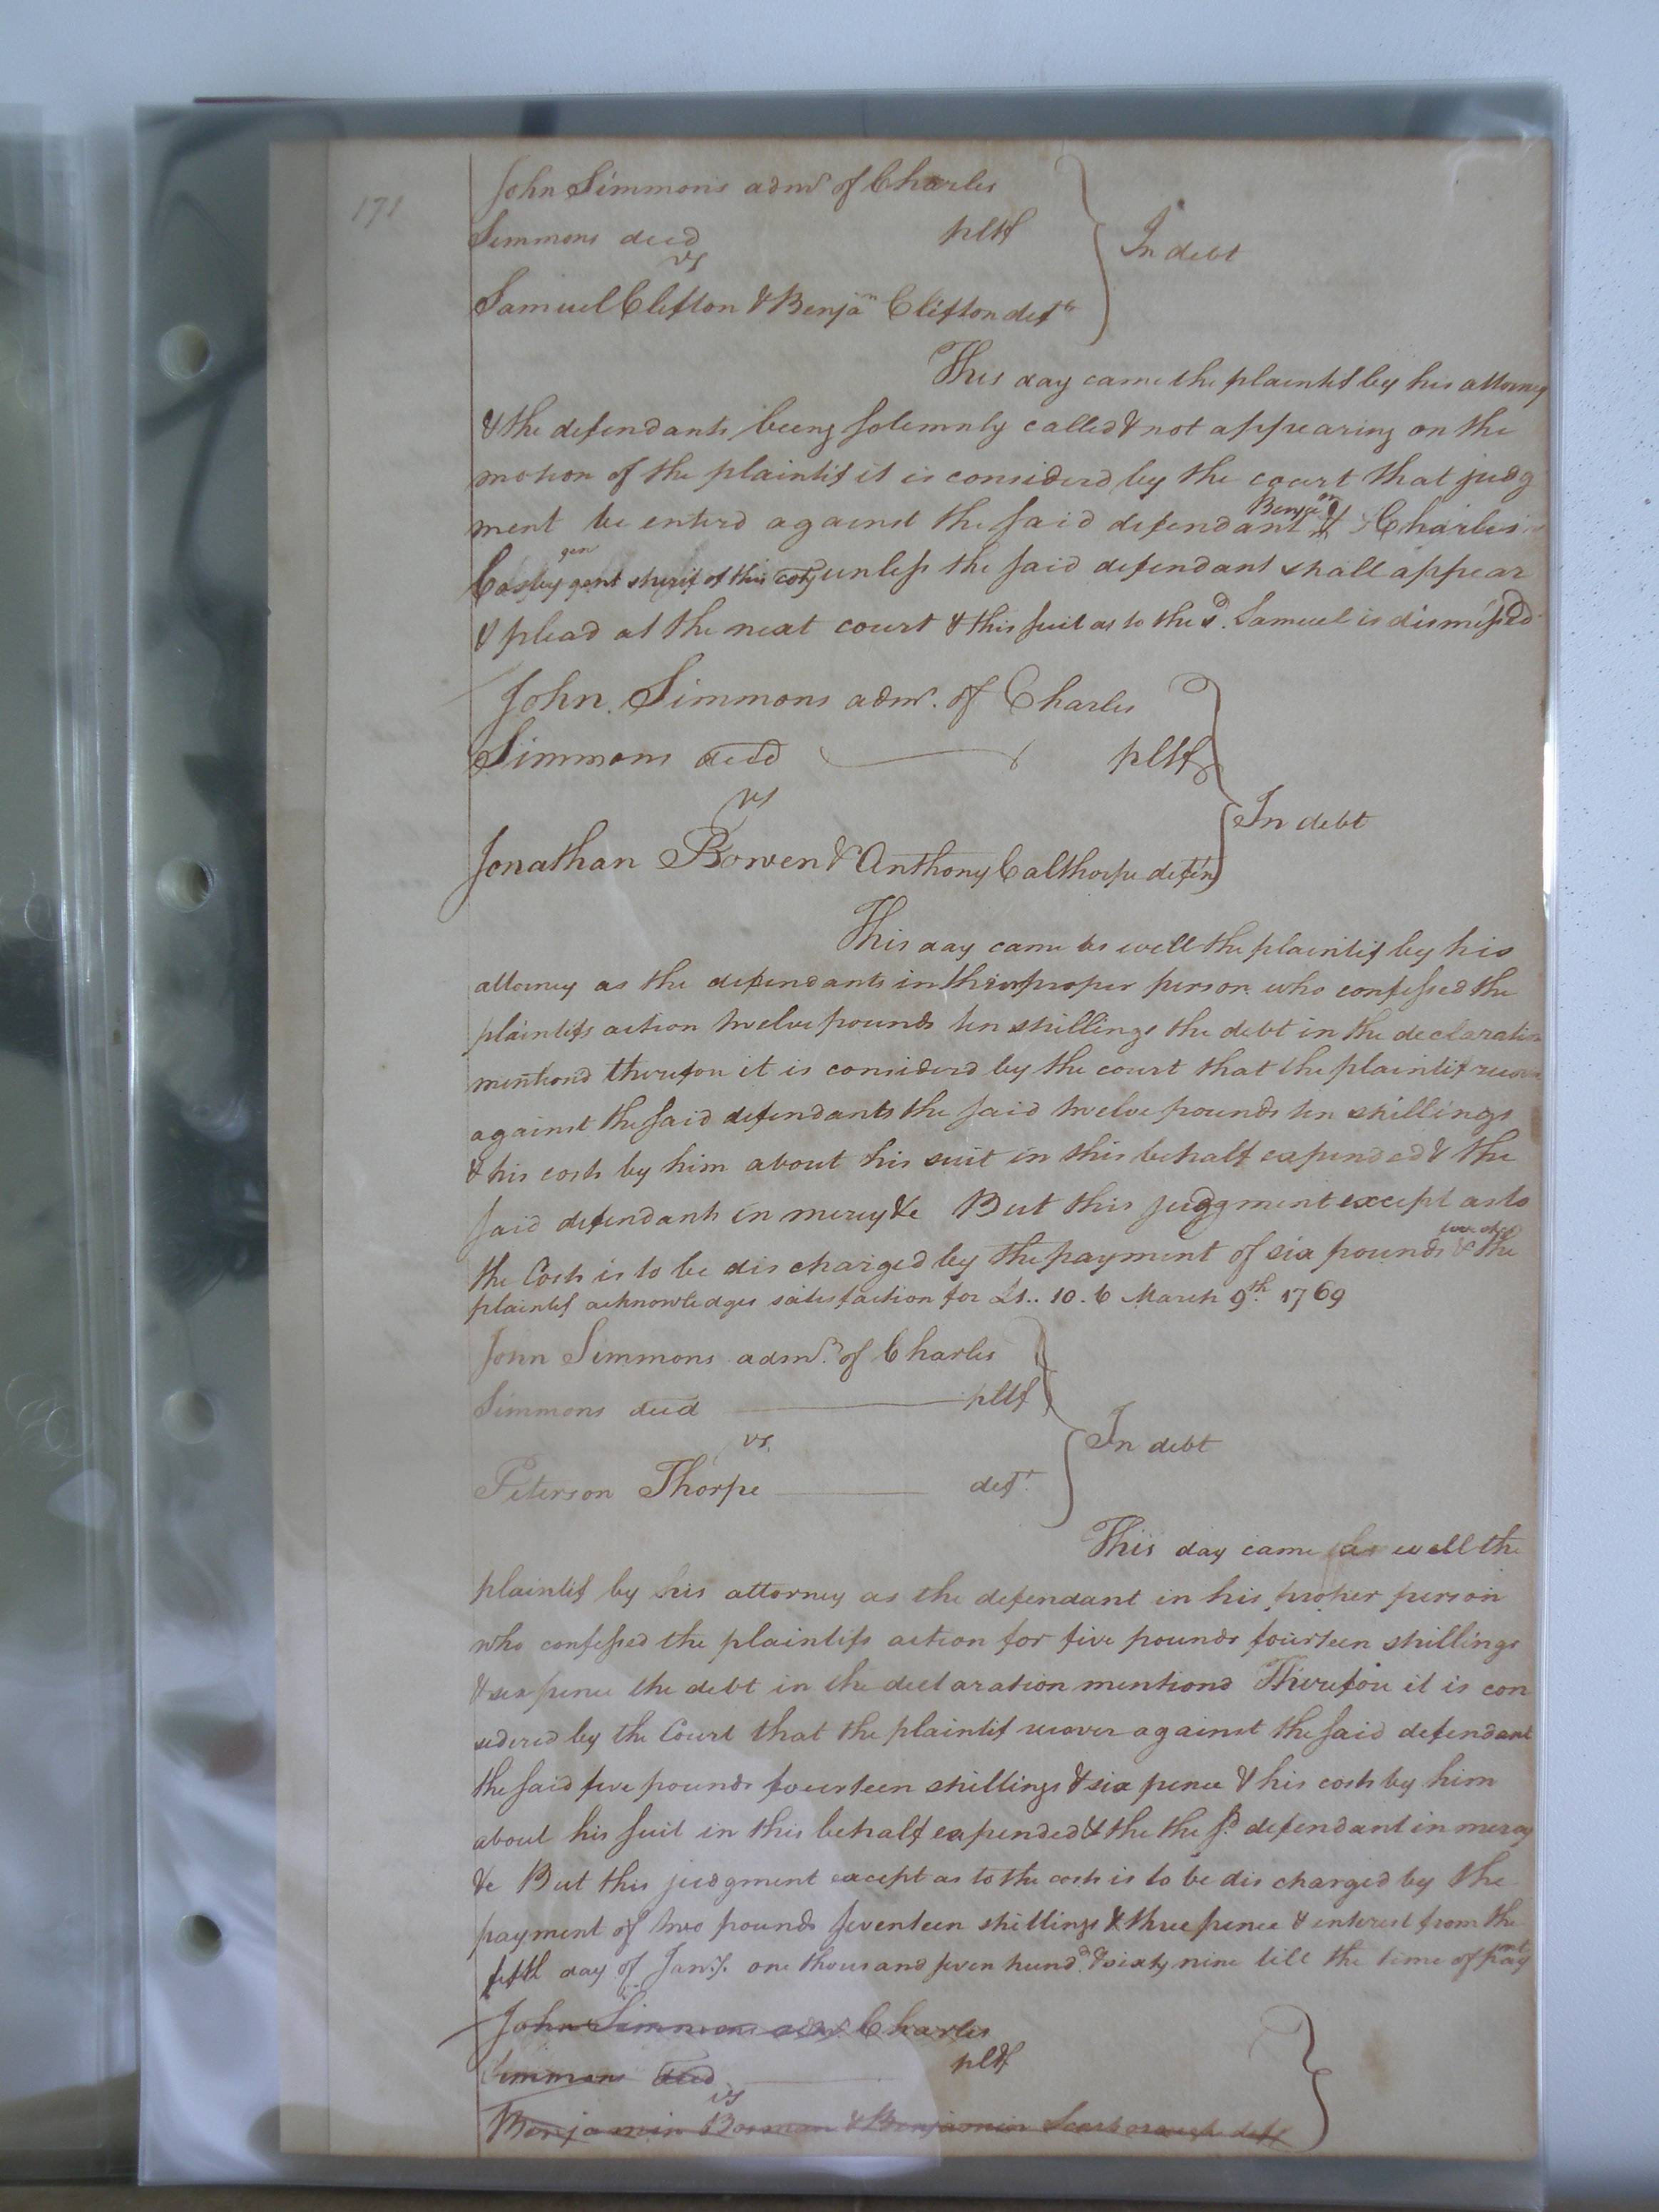 171
John Simmons admr of Charles
Simmons decd pltf
vs
Samuel Clifton & Benjan Clifton defts
In debt
This day came the plaintif by his attorney
& the defendants being solemnly called & not appearing on the
motion of the plaintif it is considerd by the court that judg
ment be enterd against the said defendant Benjan & Charles
Cosby gent sherif of this coty unless the said defendant shall appear
& plead at the next court & this suit as to the sd. Samuel is dismissed
John Simmons admr. of Charles
Simmons decd pltf
vs
Jonathan Bowen & Anthony Calthorpe defen
In debt
This day came as well the plaintif by his
attorney as the defendants in their proper person who confessed the
plaintifs action twelve pounds ten shillings the debt in the declaration
mentiond therefore it is considerd by the court that the plaintif recover
against the said defendants the said twelve pounds ten shillings
& his costs by him about his suit in this behalf expended & the
said defendants in mercy &c But this judgment except as to
the Costs is to be discharged by the payment of six pounds & the
plaintif acknowledges satisfaction for £1.. 10. 6 March 9th. 1769
John Simmons admr. of Charles
Simmons decd pltf
vs.
Peterson Thorpe deft.
In debt
This day came as well the
plaintif by his attorney as the defendant in his proper person
who confessed the plaintifs action for five pounds fourteen shillings
& six pence the debt in the declaration mentiond Therefore it is con
sidered by the Court that the plaintif recover against the said defendant
the said five pounds fourteen shillings & six pence & his costs by him
about his suit in this behalf expended & the the sd. defendant in mercy
&c But this judgment except as to the costs is to be discharged by the
payment of two pounds seventeen shillings & three pence & interest from the
fifth day of Jany. one thousand seven hundd. & sixty nine till the time of paymt
John Simmons admr Charles
Simmons decd pltf
vs
Benjamin Bowman & Benjamin Scarborough deft